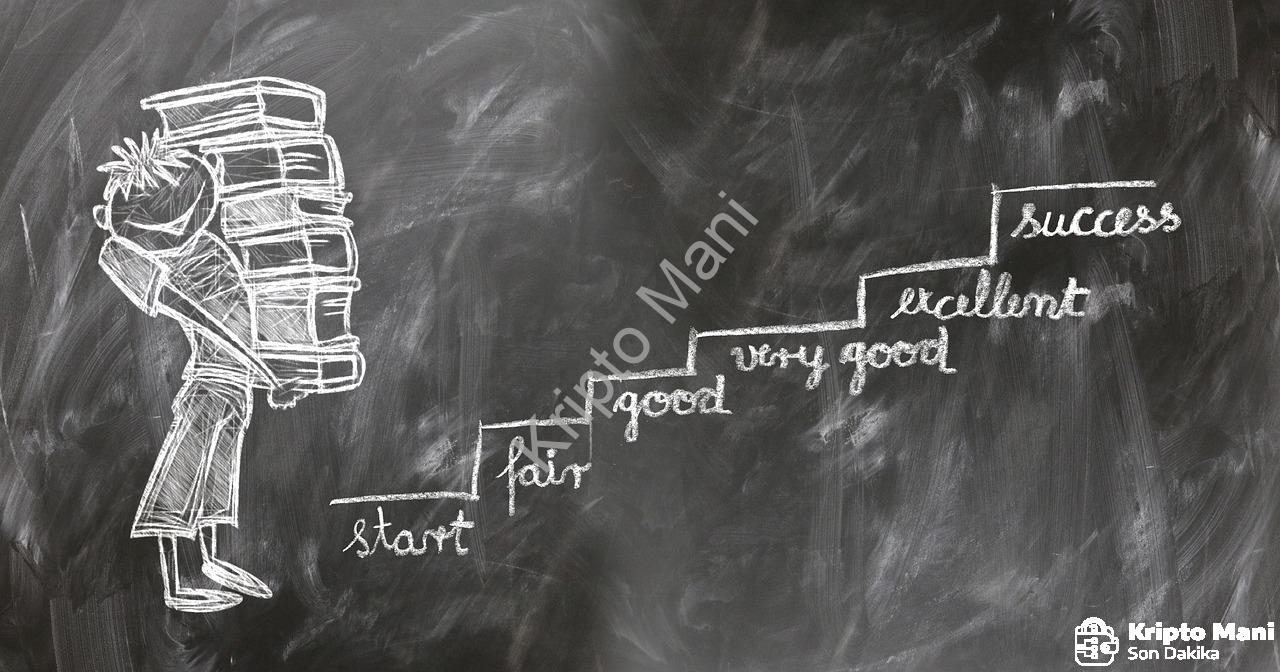 success
excellent
very good
good
fair
start
Kripto Mani
Kripto Mani
Son Dakika